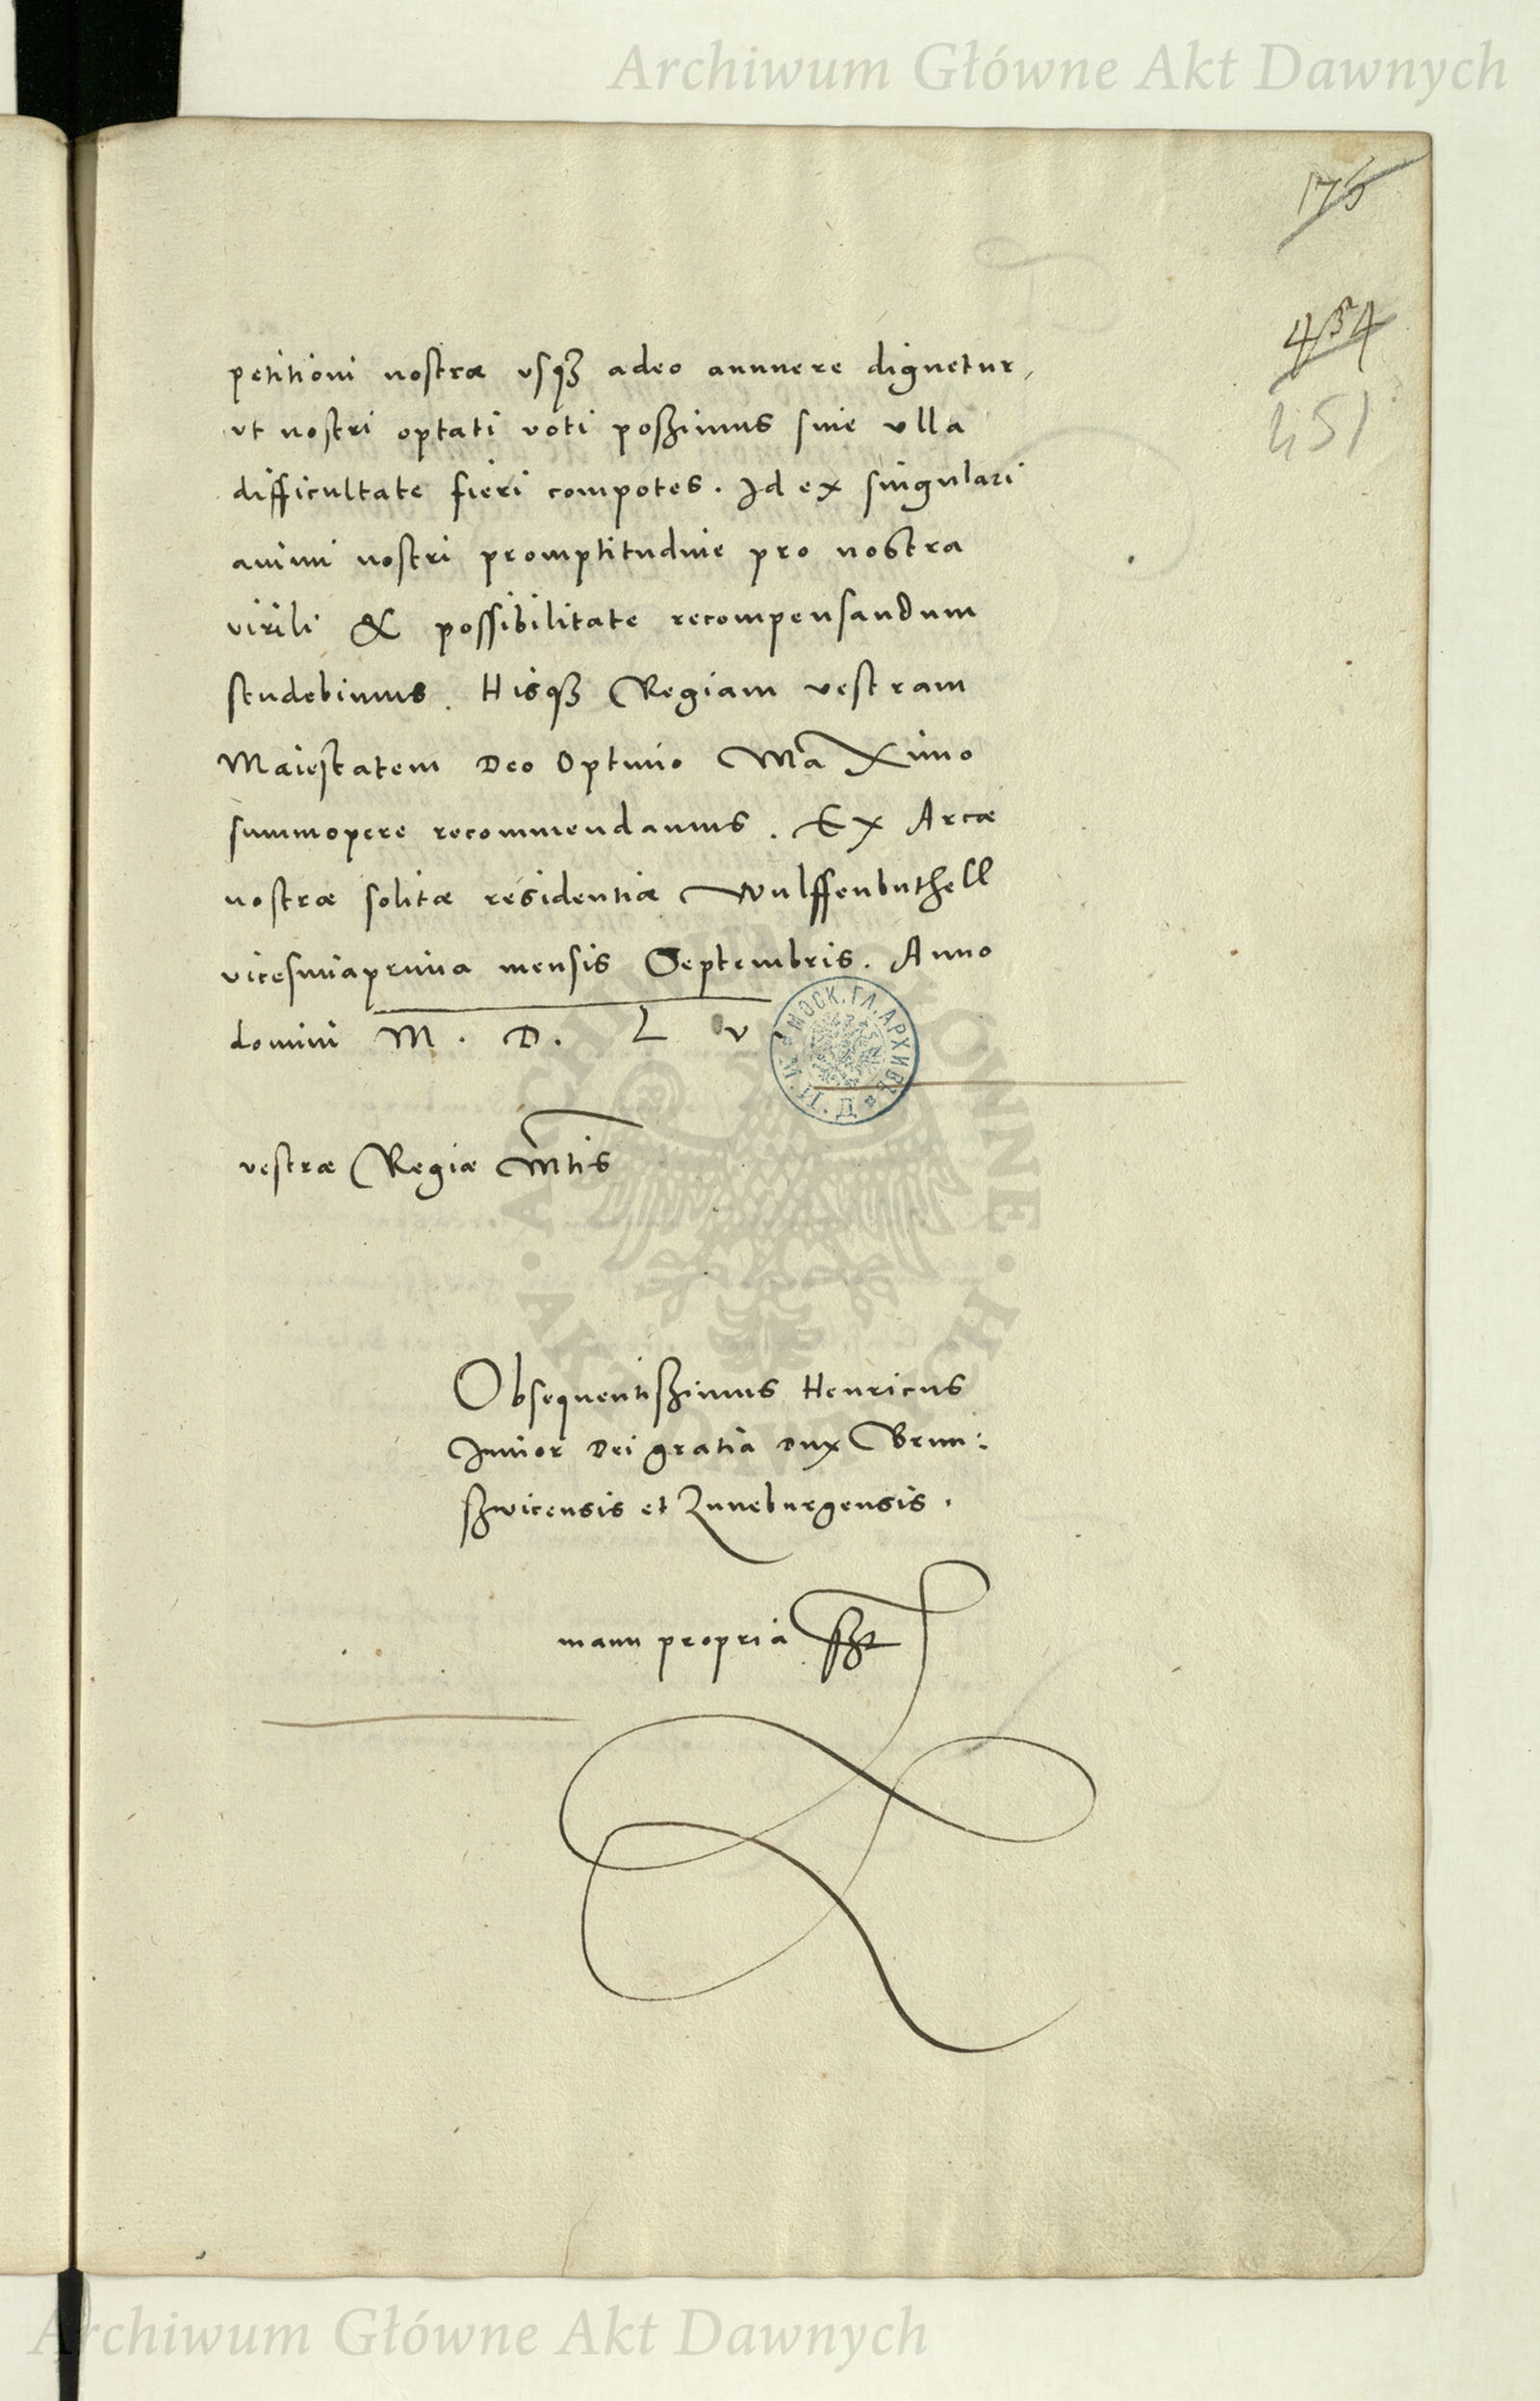 Archiwum Główne Akt Dawnych
175
454
451
petitioni nostræ vsqꝫ adeo annuere dignetur,
vt nostri optati voti poßimus sine vlla
difficultate fieri compotes. Id ex singulari
animi nostri promptitudine pro nostra
virili & possibilitate recompensandum
studebimus. Hisqꝫ Regiam vestram
Maiestatem Deo Optimo Maximo
summopere recommendamus. Ex Arcæ
nostræ solitæ residentiæ Wulffenbuthell
vicesimaprima mensis Septembris. Anno
domini M. D. L v
МОСК. ГЛ. АРХИВЪ М. И. Д.
vestræ Regiæ Mtis
Obsequentißimus Henricus
Iunior Dei gratia Dux Brun:
ßwicensis et Luneburgensis.
manu propria ßt
ARCHIWUM GŁÓWNE AKT DAWNYCH
Archiwum Główne Akt Dawnych